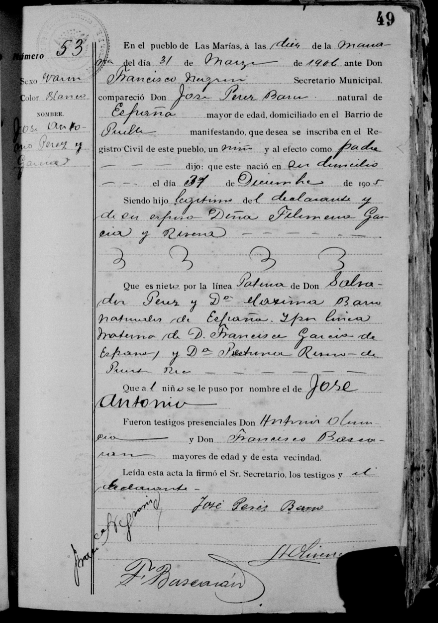 49
Número 53
Sexo Varon
Color Blanco
NOMBRE.
José Anto-
nio Perez y
Garcia
En el pueblo de Las Marías, á las diez de la maña
na del día 31 de Marzo de 1906 ante Don
Francisco Secretario Municipal.
compareció Don José Perez natural de
España mayor de edad, domiciliado en el Barrio de
manifestando, que desea se inscriba en el Re-
gistro Civil de este pueblo, un niño y al efecto como padre
dijo: que este nació en su domicilio
el día de Diciembre de 1905
Siendo hijo legitimo del declarante y
de su esposa Doña Filomena Gar-
cia y
Que es nieto por la línea Paterna de Don Salva-
dor Perez y Da Maxima
naturales de España. Y por linea
materna de D. Francisco Garcia de
España, y Da de
Puerto Rico
Que al niño se le puso por nombre el de José
Antonio
Fueron testigos presenciales Don Antonio
y Don Francisco Basco-
mayores de edad y de esta vecindad.
Leída esta acta la firmó el Sr. Secretario, los testigos y el
declarante
José Perez
Fr Bascarán